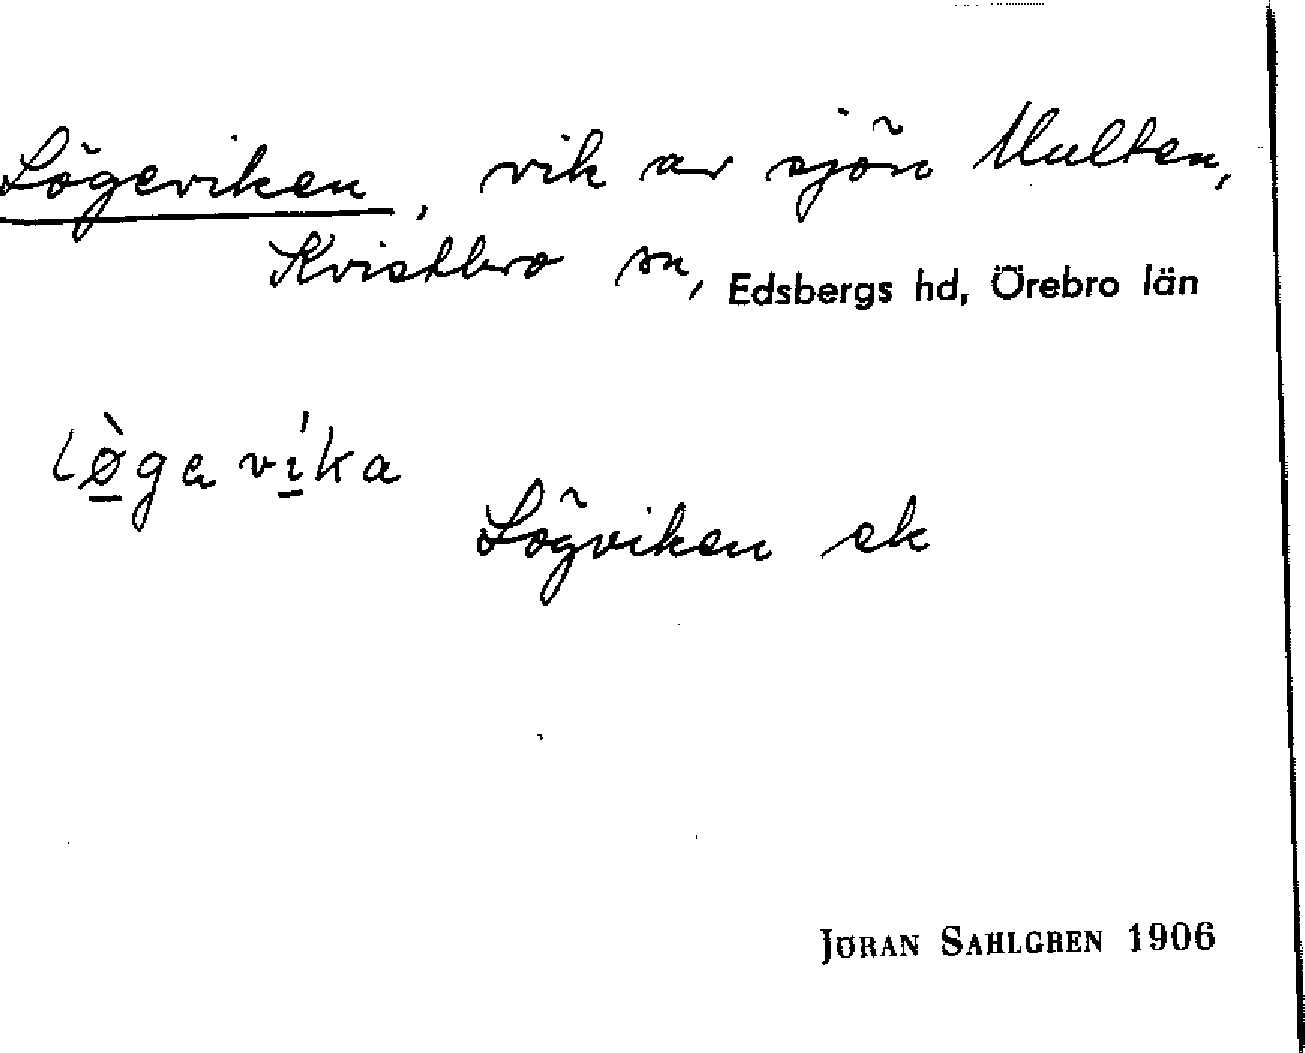 Lögeviken, vik av sjön Multen,
Kvistbro sn, Edsbergs hd, Örebro län
lø̀gavíka
Lögviken ek
JÖRAN SAHLGREN 1906